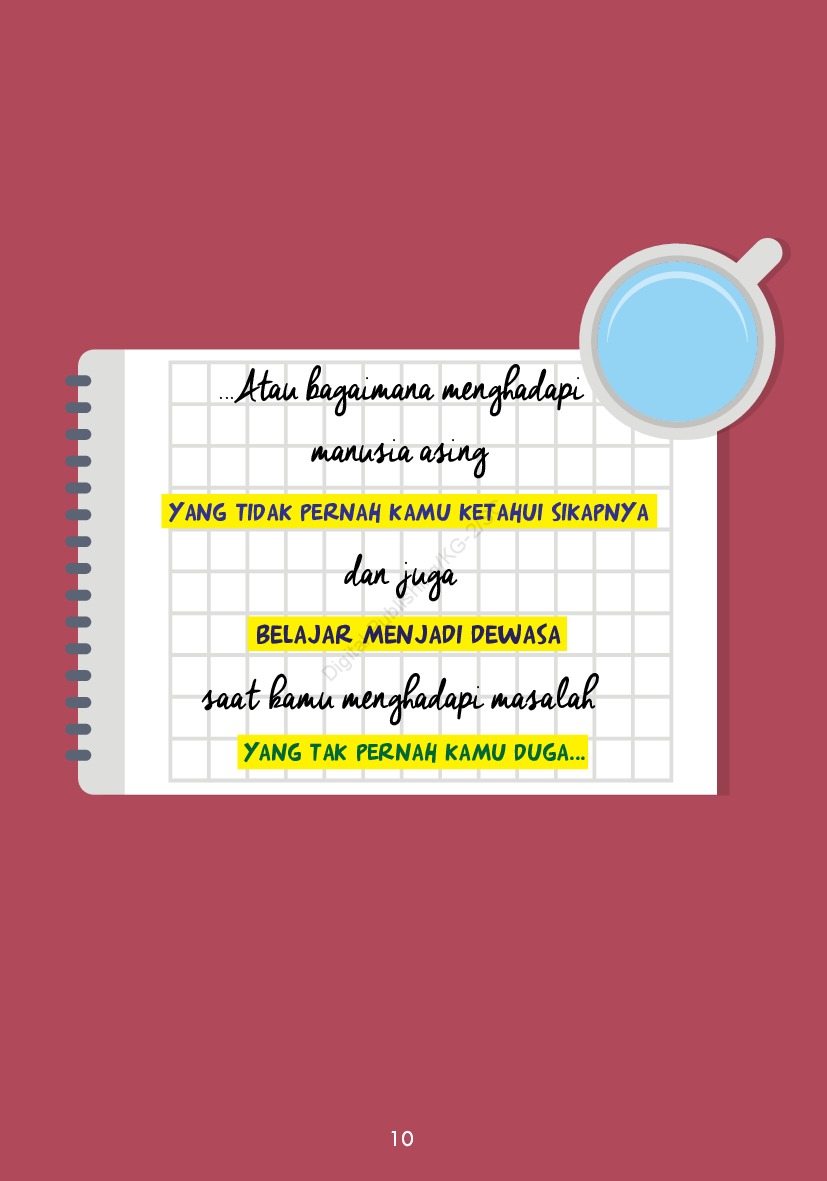 ...Atau bagaimana menghadapi
manusia asing
YANG TIDAK PERNAH KAMU KETAHUI SIKAPNYA
dan juga
BELAJAR MENJADI DEWASA
saat kamu menghadapi masalah
YANG TAK PERNAH KAMU DUGA...
10